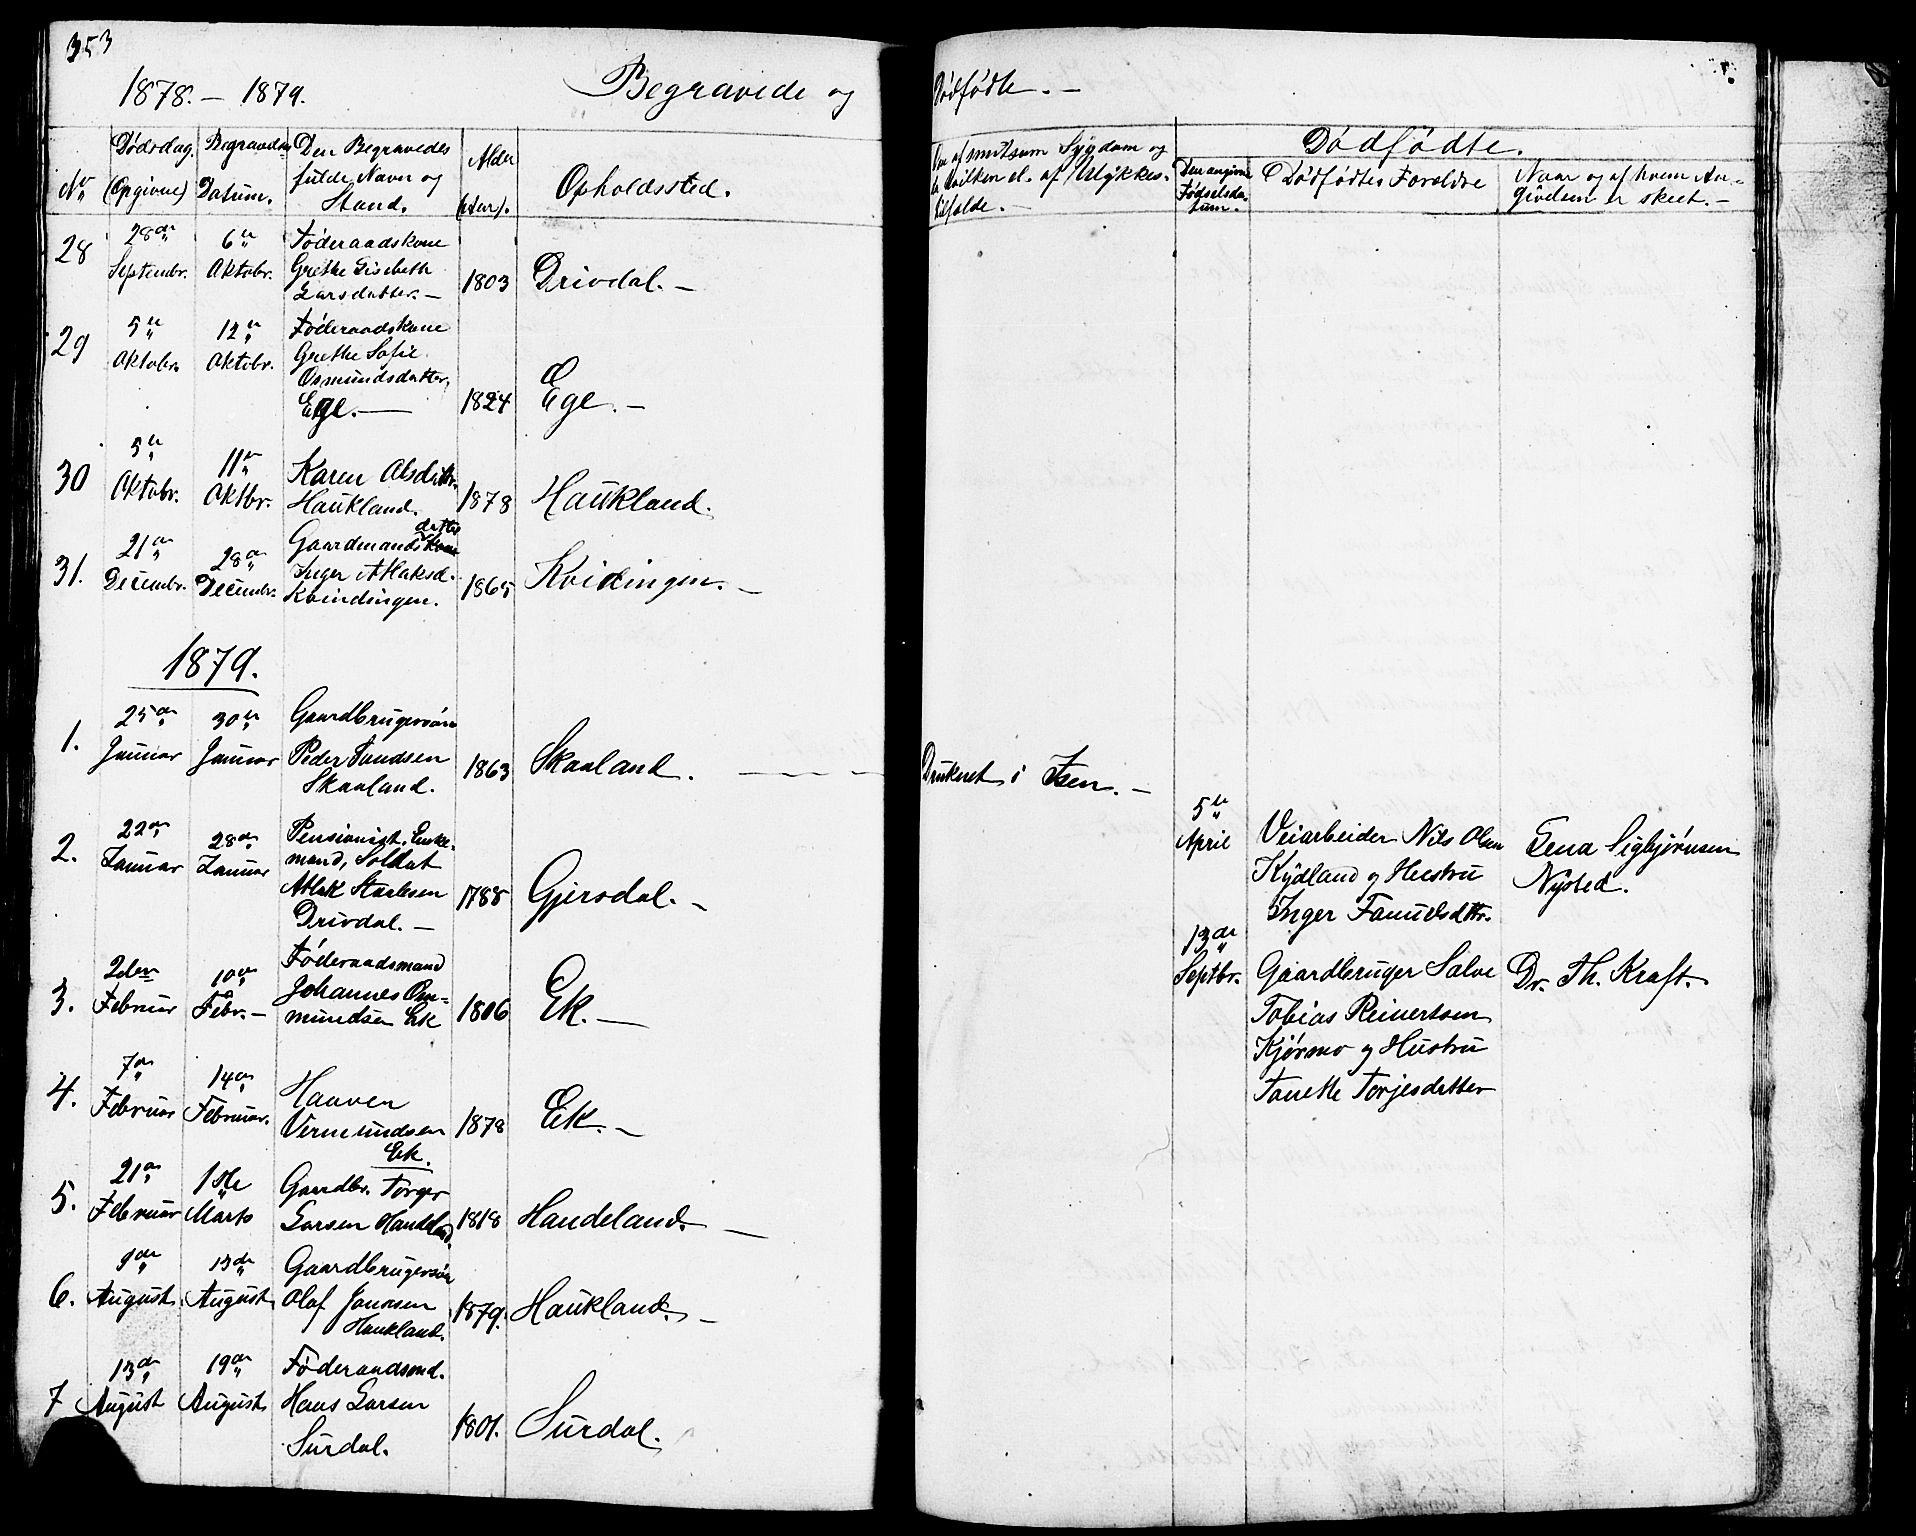 353
1878. – 1879.
Begravede og
Dødfødte. –
No
Dødsdag. (Opgivne)
Begravelses Datum.
Den Begravedes fulde Navn og Stand.
Alder (Aar).
Opholdssted.
smitsom Sygdom og
hvilken el. af Ulykkes-
tilfælde. –
Dødfødte.
Den angivne Fødselsdatum.
Dødfødtes Forældre
Naar og af hvem An-
givelsen er skeet. –
28
28de Septembr.
6te Oktobr.
Føderaadskone
Grethe Lisebeth
Larsdatter. –
1803
Drivdal. –
29
5te Oktobr.
12te Oktobr.
Føderaadskone
Grethe Sofie
Osmundsdatter
Ege. –
1824
Ege. –
30
5te Oktobr.
11te Oktbr.
Karen Olsdattr.
Haukland.
1878
Haukland.
31.
21de Decembr.
28de Decembr.
Gaardmandsdatter
Inger Atlaksd.
Kvindingen.
1865
Kvidingen. –
1879.
1.
25de Januar
30te Januar
Gaardbrugersøn
Peder Tundsen
Skaaland.
1863
Skaaland. – – – –
Druknet i Isen. –
2.
22de Januar
28de Januar
Pensionist, Enke-
mand, Soldat
Atlak Starksen
Drivdal. –
1788
Gjersdal. –
3.
2den Februar
10de Febr. –
Føderaadsmand
Johannes Om-
mundsen Ek
1806
Ek. –
4.
7de Februar
14de Februar.
Haaven
Vermundsen
Ek.
1878
Ek. –
5.
21de Februar
1ste Marts
Gaardbr. Torger
Larsen Handeland.
1818
Handeland. –
6.
9de August
13de August
Gaardbrugersøn
Olaf Jonasen
Haukland.
1879.
Haukland. –
7
13de August
19de August
Føderaadsmd.
Hans Larsen
Surdal.
1801.
Surdal.
5te April
Veiarbeider Nils Olsen
Kydland og Hustru
Inger Fanuelsdttr.
Lena Sigbjørnsen
Nysted.
13de Septbr.
Gaardbruger Salve
Tobias Reinertsen
Kjørmo og Hustru
Tanette Torjesdatter
Dr. Th. Kraft.